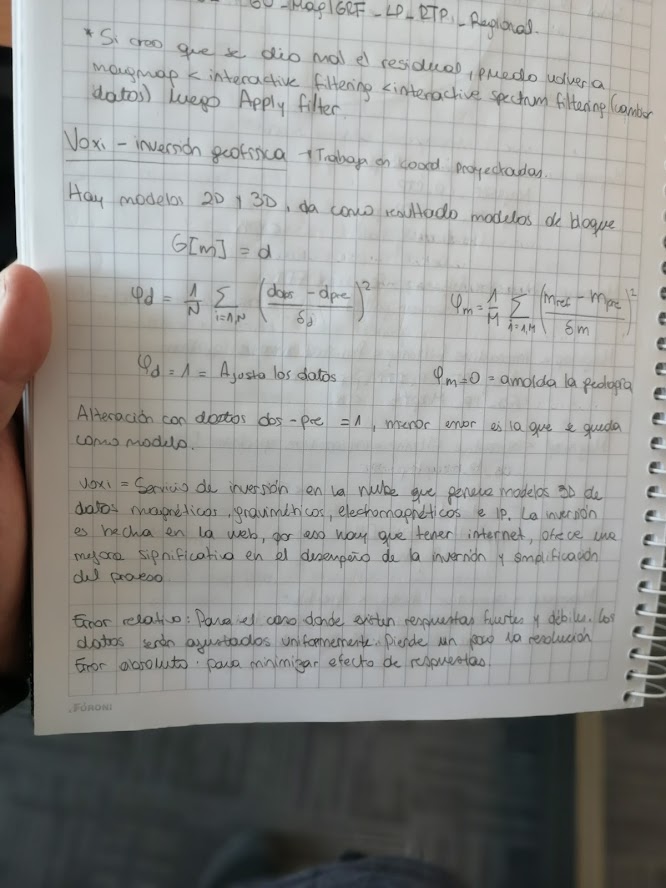 GU_Mag IGRF_LP_RTP_Regional.
* Si creo que se dio mal el residual, puedo volver a
magmap < interactive filtering < interactive spectrum filtering (cambiar
datos) luego Apply filter.
Voxi - inversión geofísica → Trabaja en coord proyectadas.
Hay modelos 2D y 3D, da como resultado modelos de bloque
G[m] = d
φd = 1/N Σ i=1,N ((dobs - dpre)/δd)² φm = 1/M Σ i=1,M ((mref - mpre)/δm)²
φd = 1 = Ajusta los datos φm=0 = amolda la geología
Alteración con datos dos-pre = 1, menor error es la que se queda
como modelo.
Voxi = Servicio de inversión en la nube que genera modelos 3D de
datos magnéticos, gravimétricos, electromagnéticos e IP. La inversión
es hecha en la web, por eso hay que tener internet, ofrece una
mejora significativa en el desempeño de la inversión y simplificación
del proceso.
Error relativo: Para el caso donde existen respuestas fuertes y débiles. Los
datos serán ajustados uniformemente. Pierde un poco la resolución
Error absoluto: para minimizar efecto de respuestas.
FORONI